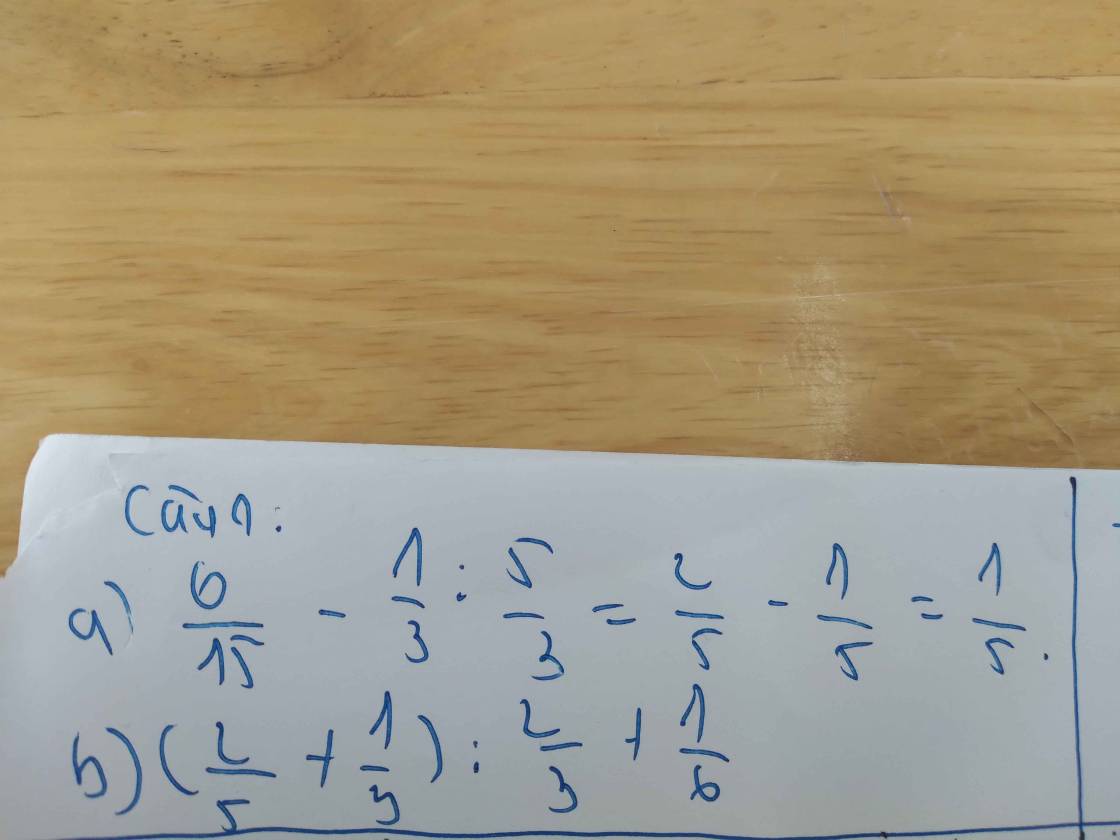 Câu 1:
a) 6/15 - 1/3 : 5/3 = 2/5 - 1/5 = 1/5.
b) (2/5 + 1/3) : 2/3 + 1/6